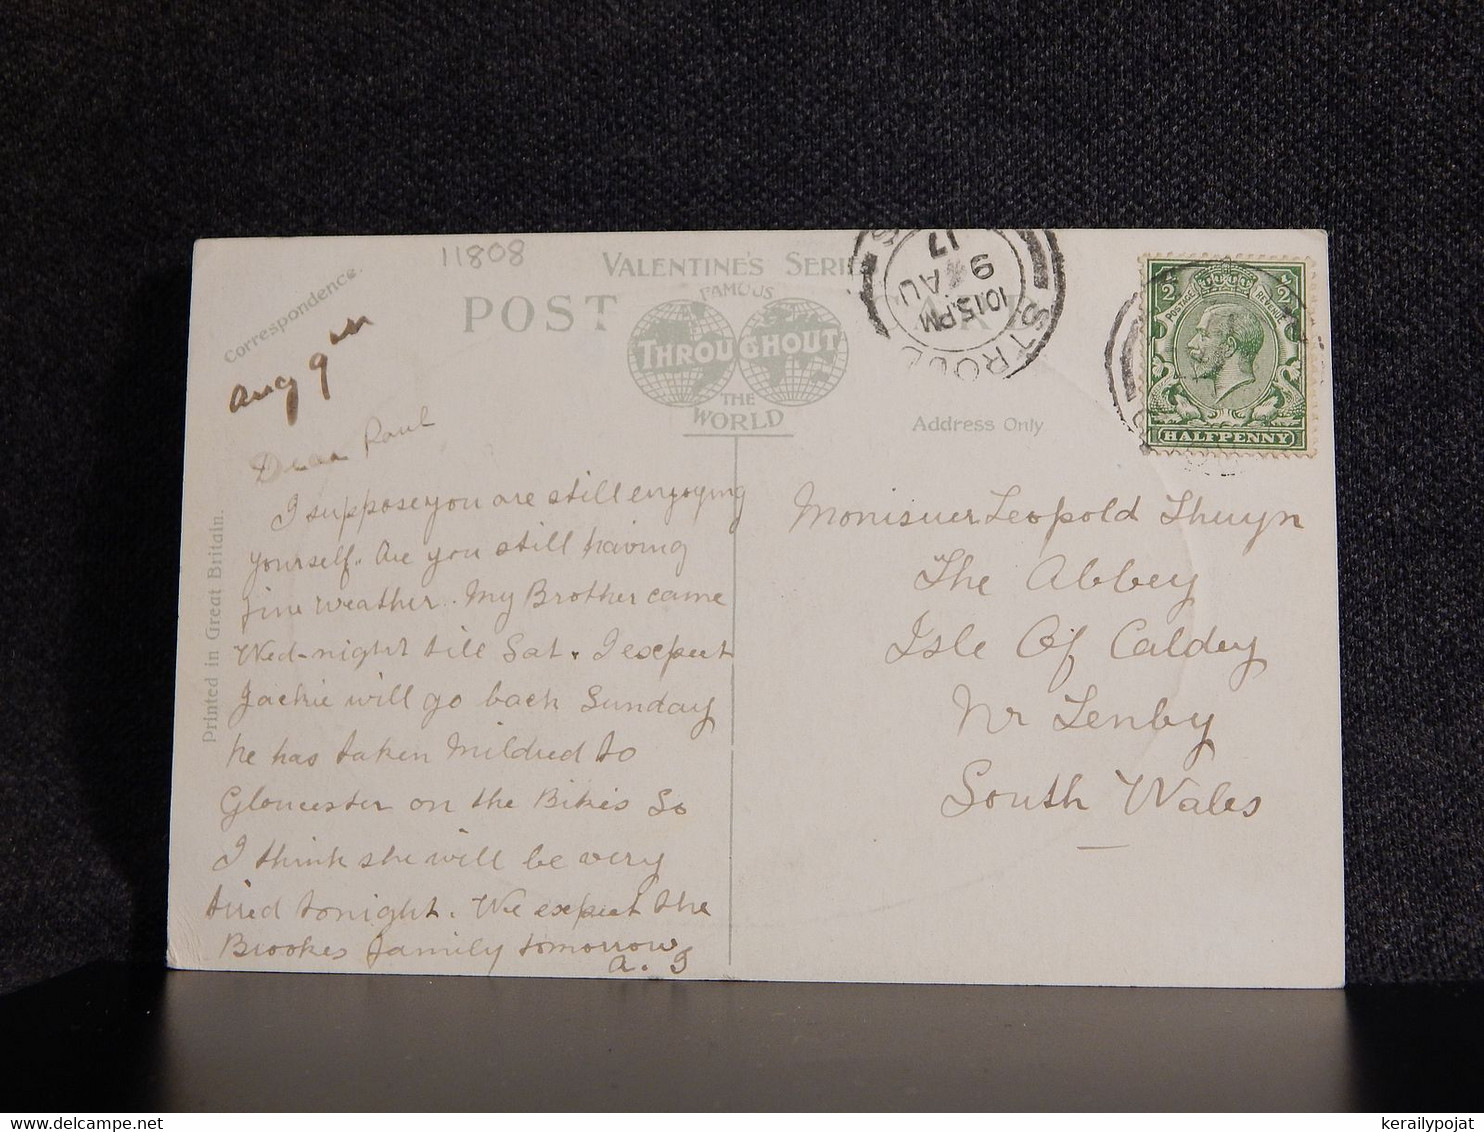 11808
Correspondence.
VALENTINE'S SERIES
FAMOUS
POST CARD
THROUGHOUT
THE
WORLD
Address Only
Printed in Great Britain.
STROUD
10.15 PM
9 AU
17
S
½ ½
POSTAGE REVENUE
HALFPENNY
Aug 9th
Dear Paul
I suppose you are still engoying
yourself. Are you still having
fine weather. My Brother came
Wed-night till Sat. I expect
Jackie will go back Sunday
he has taken Mildred to
Gloucester on the Bikes So
I think she will be very
tired tonight. We expect the
Brookes family tomorrow
A. G
Monisuer Leopold Thuyn
The Abbey
Isle Of Caldey
Nr Tenby
South Wales
kerailypojat
delcampe.net